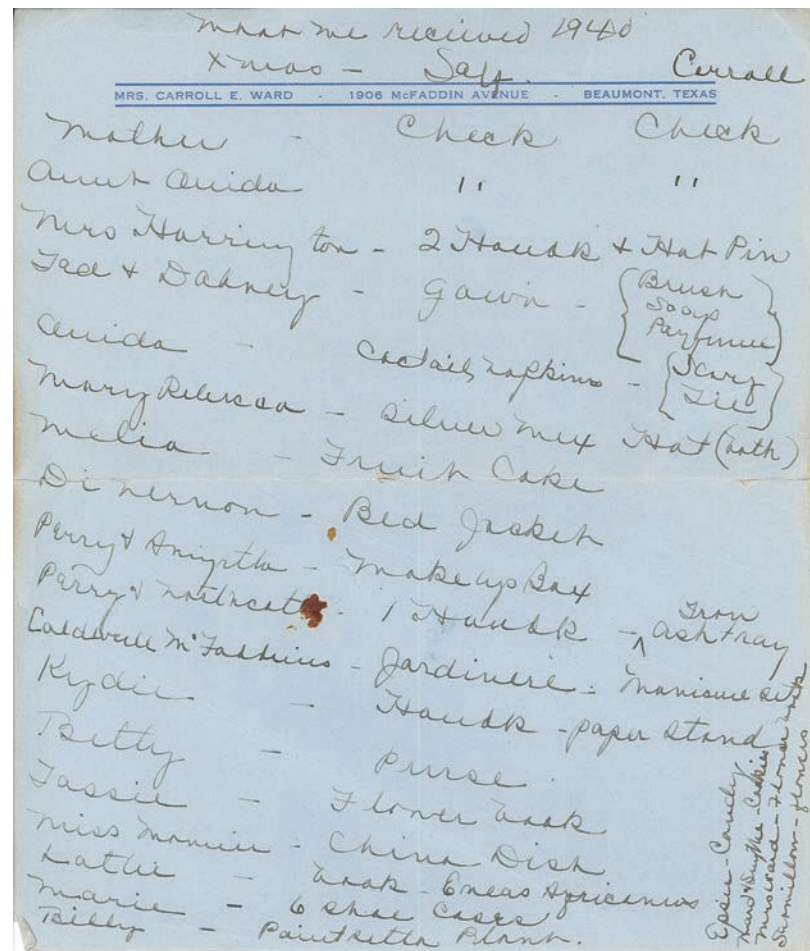 What we recieved 1940
Xmas - Self. Carroll
MRS. CARROLL E. WARD - 1906 McFADDIN AVENUE - BEAUMONT, TEXAS
Mother - Check Check
Aunt Ouida " "
Mrs Harrington - 2 Handk + Hat Pin
Tad + Dabney - gown - { Brush
Soap
Perfume }
Ouida - Coctail napkins - { Scarf
Tie }
Mary Reberson - Silver mux Hat (both)
Melia - Fruit Cake
Di Vernon - Bed Jacket
Perry & Smyth - Makeup Box
Perry & - 1 Handk - Iron ash tray
Caldwell McFaddins - Jardinere - Manicure set
Kydie - Handk - paper stand
Betty - purse.
Tassie - Flower book
Miss Mamie - China Dish
Kathe - book - Eneas Africanus
Marie - 6 shoe Cases
Billy - Paintsetta Plant.
Essie - Candy
Ward & Smythe - Cookies
Mrs Ward - Flower book
- flowers